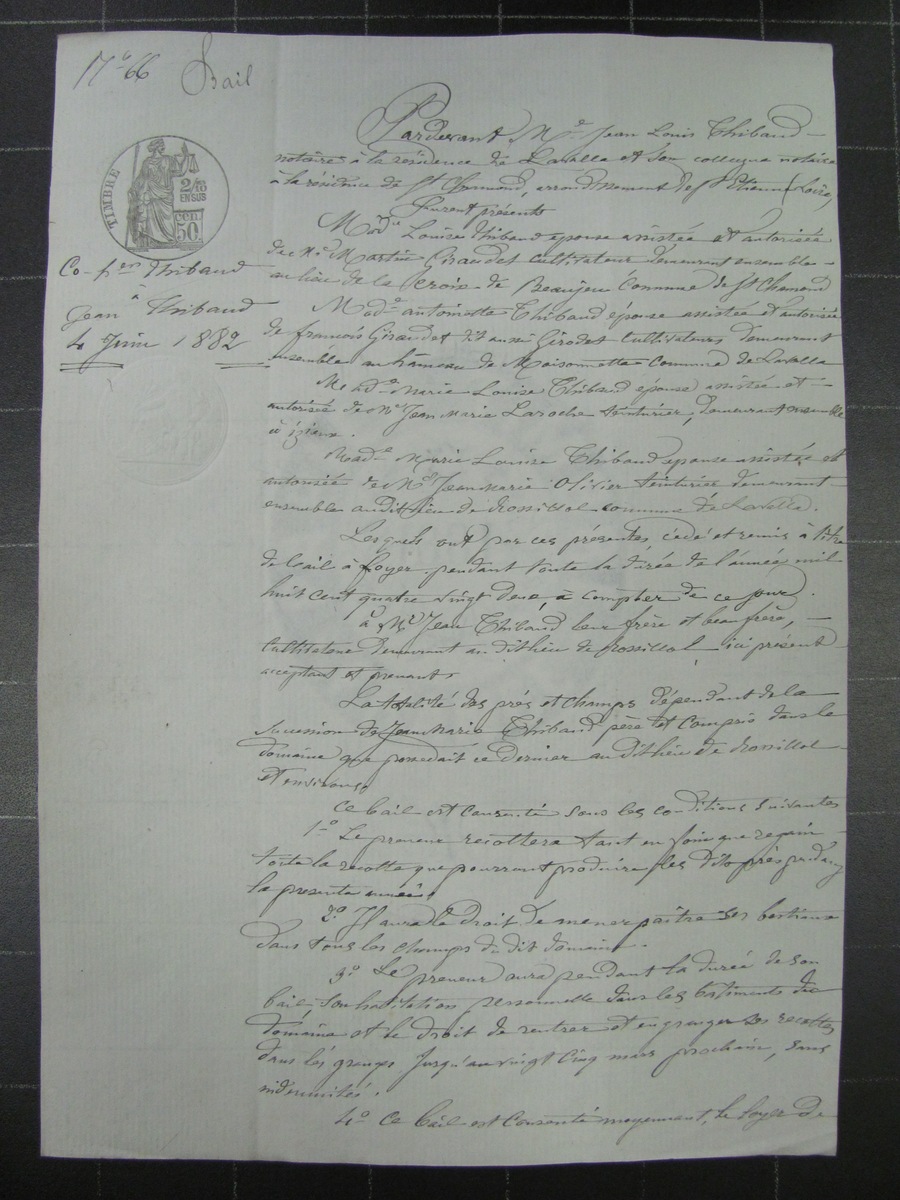 N° 66 Bail
TIMBRE
2/10
EN SUS
50 cen
Co-hers Thibaud
à
Jean Thibaud
4 Juin 1882
Pardevant Me Jean Louis Thibaud
notaire à la résidence de Lavalla et son collègue notaire
à la résidence de St Chamond, arrondissement de St Etienne (Loire)
Furent présents
Made Louise Thibaud épouse assistée et autorisée
de Mr Martin Giraudet cultivateur demeurant ensemble
au lieu de la Croix de Beaujeu Commune de St Chamond
Made antoinette Thibaud épouse assistée et autorisée
de françois Giraudet dit aussi Girodet Cultivateurs demeurant
ensemble au hameau de Maisonnette Commune de Lavalla
Made Marie Louise Thibaud épouse assistée et
autorisée de Mr Jean Marie Laroche teinturier, demeurant ensemble
à izieux.
Made Marie Louise Thibaud épouse assistée et
autorisée de Mr Jean Marie Olivier teinturier demeurant
ensemble audit lieu de Rossillol commune de Lavalla.
Lesquels ont par ces présentes cédé et remis à titre
de bail à loyer pendant toute la durée de l'année mil
huit cent quatre vingt deux, à compter de ce jour.
à Mr Jean Thibaud leur frère et beau frère,
Cultivateur demeurant audit lieu de Rossillol ici présent
acceptant et prenant
La totalité des prés et champs dépendant de la
succession de Jean Marie Thibaud père et compris dans le
domaine que possédait ce dernier audit lieu de Rossillol
et environs.
Ce bail est consenti sous les conditions suivantes
1° Le preneur récoltera tant en foin que regain
toute la récolte que pourront produire les dits prés pendant
la presente année.
2° Il aura le droit de mener paître ses bestiaux
dans tous les champs du dit domaine.
3° Le preneur aura pendant la durée de son
bail, son habitation personnelle dans les batiments du
domaine et le droit de rentrer et engranger ses recoltes
dans les granges jusqu'au vingt cinq mars prochain, sans
indemnités.
4° Ce bail est Consenti moyennant, le loyer de